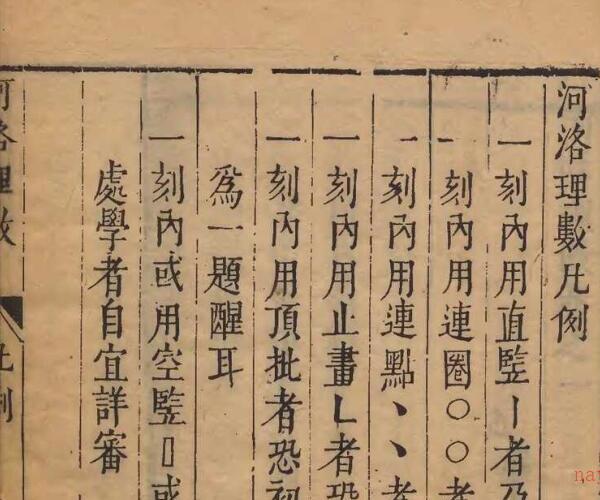 河洛理數凡例
一刻內用直竪丨者乃
一刻內用連圈○○者
一刻內用連點丶丶者
一刻內用止畫乚者恐
一刻內用頂批者恐初
爲一題醒耳
一刻內或用空竪▯或
處學者自宜詳審
河洛理數
凡例
nay